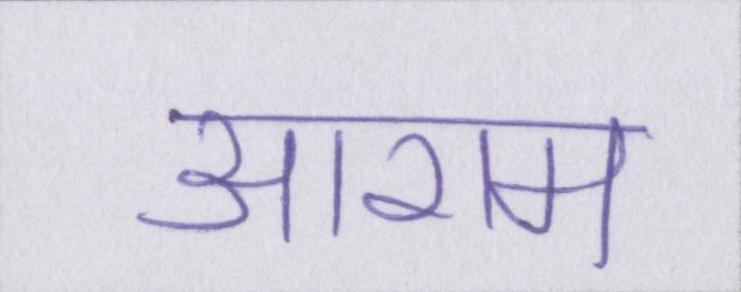 आराम